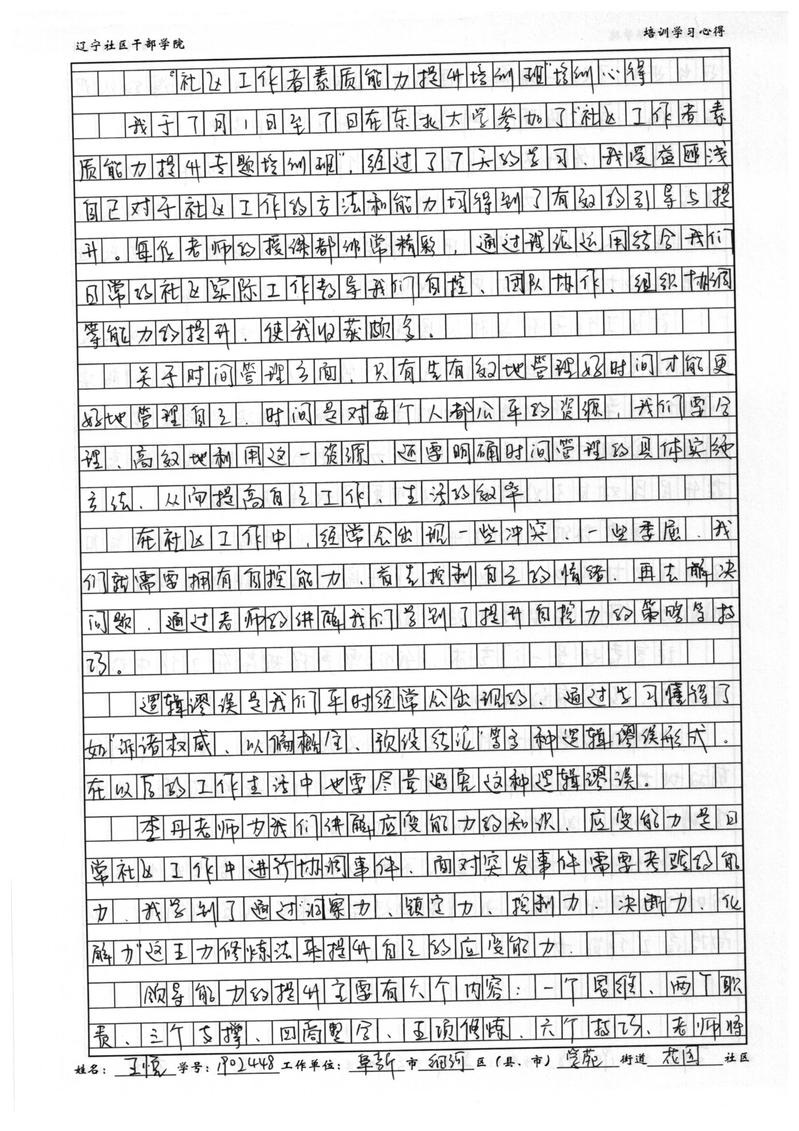 辽宁社区干部学院 培训学习心得
"社区工作者素质能力提升培训班"培训心得
我于7月1日至7日在东北大学参加了"社区工作者素
质能力提升专题培训班",经过了7天的学习,我受益匪浅
自己对于社区工作的方法和能力均得到了有效的引导与提
升。每位老师的授课都非常精彩,通过理论运用结合我们
日常的社区实际工作教导我们自控、团队协作、组织协调
等能力的提升,使我收获颇多。
关于时间管理方面,只有先有效地管理好时间才能更
好地管理自己,时间是对每个人都公平的资源,我们要合
理、高效地利用这一资源,还要明确时间管理的具体实施
方法,从而提高自己工作、生活的效率
在社区工作中,经常会出现一些冲突、一些委屈,我
们就需要拥有自控能力,首先控制自己的情绪,再去解决
问题,通过老师的讲解我们学到了提升自控力的策略与技
巧。
逻辑谬误是我们平时经常会出现的,通过学习懂得了
如"诉诸权威、以偏概全、预设结论"等多种逻辑谬误形式,
在以后的工作生活中也要尽量避免这种逻辑谬误。
李丹老师为我们讲解应变能力的知识,应变能力是日
常社区工作中进行协调事件、面对突发事件需要考验的能
力,我学到了通过"洞察力、镇定力、控制力、决断力、化
解力"这五力修炼法来提升自己的应变能力.
领导能力的提升主要有六个内容:一个思维、两个职
责、三个支撑、四商整合、五项修炼、六个技巧,老师将
姓名:王悦 学号:1902448 工作单位:阜新 市 细河 区(县、市) 学苑 街道 花园 社区